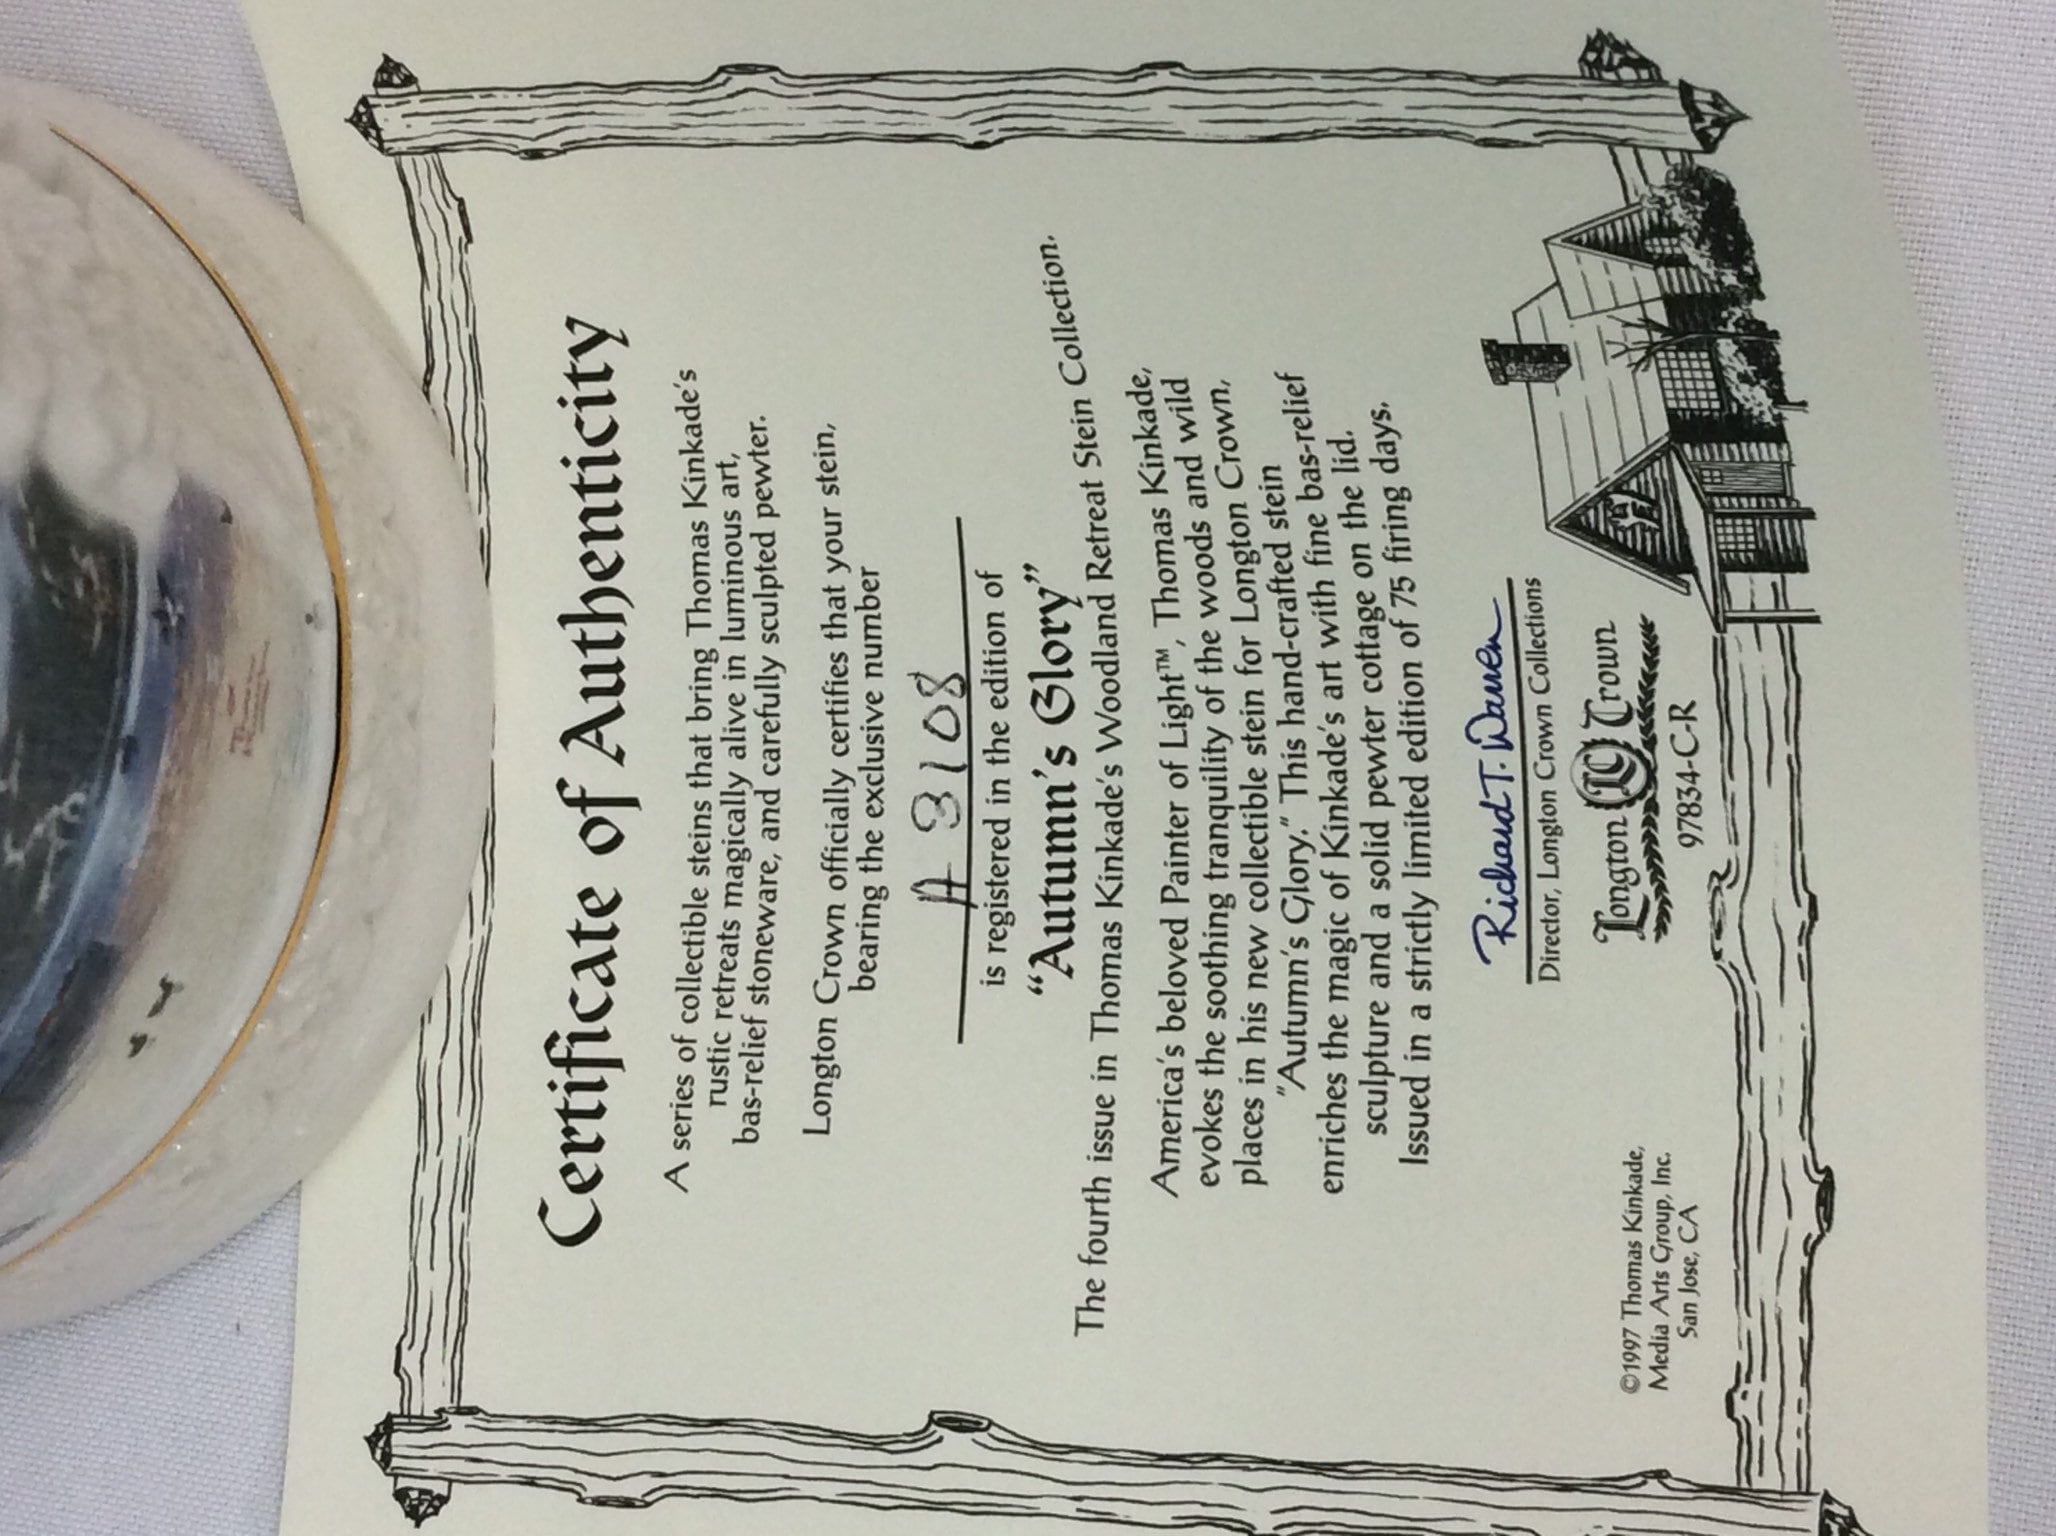 Certificate of Authenticity
A series of collectible steins that bring Thomas Kinkade's
rustic retreats magically alive in luminous art,
bas-relief stoneware, and carefully sculpted pewter.
Longton Crown officially certifies that your stein,
bearing the exclusive number
A 3108
is registered in the edition of
"Autumn's Glory"
The fourth issue in Thomas Kinkade's Woodland Retreat Stein Collection.
America's beloved Painter of Light™, Thomas Kinkade,
evokes the soothing tranquility of the woods and wild
places in his new collectible stein for Longton Crown,
"Autumn's Glory." This hand-crafted stein
enriches the magic of Kinkade's art with fine bas-relief
sculpture and a solid pewter cottage on the lid.
Issued in a strictly limited edition of 75 firing days.
Richard T. Warren
Director, Longton Crown Collections
Longton LC Crown
97834-C-R
©1997 Thomas Kinkade,
Media Arts Group, Inc.
San Jose, CA